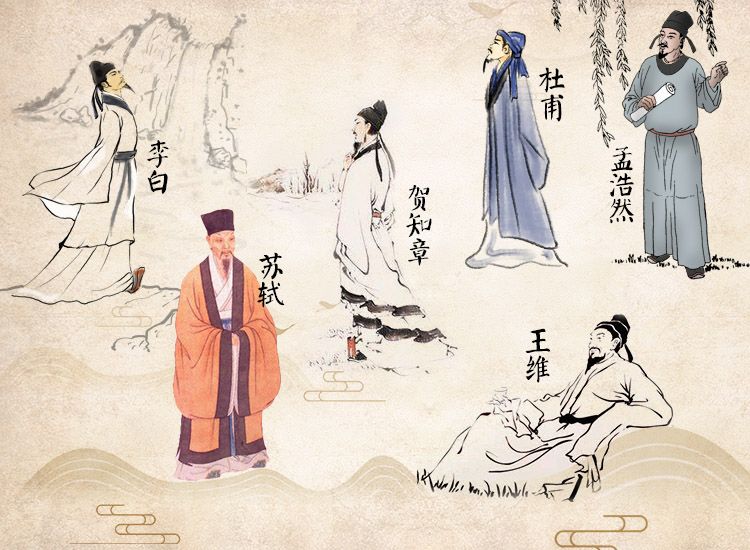 李白
苏轼
贺知章
杜甫
孟浩然
王维